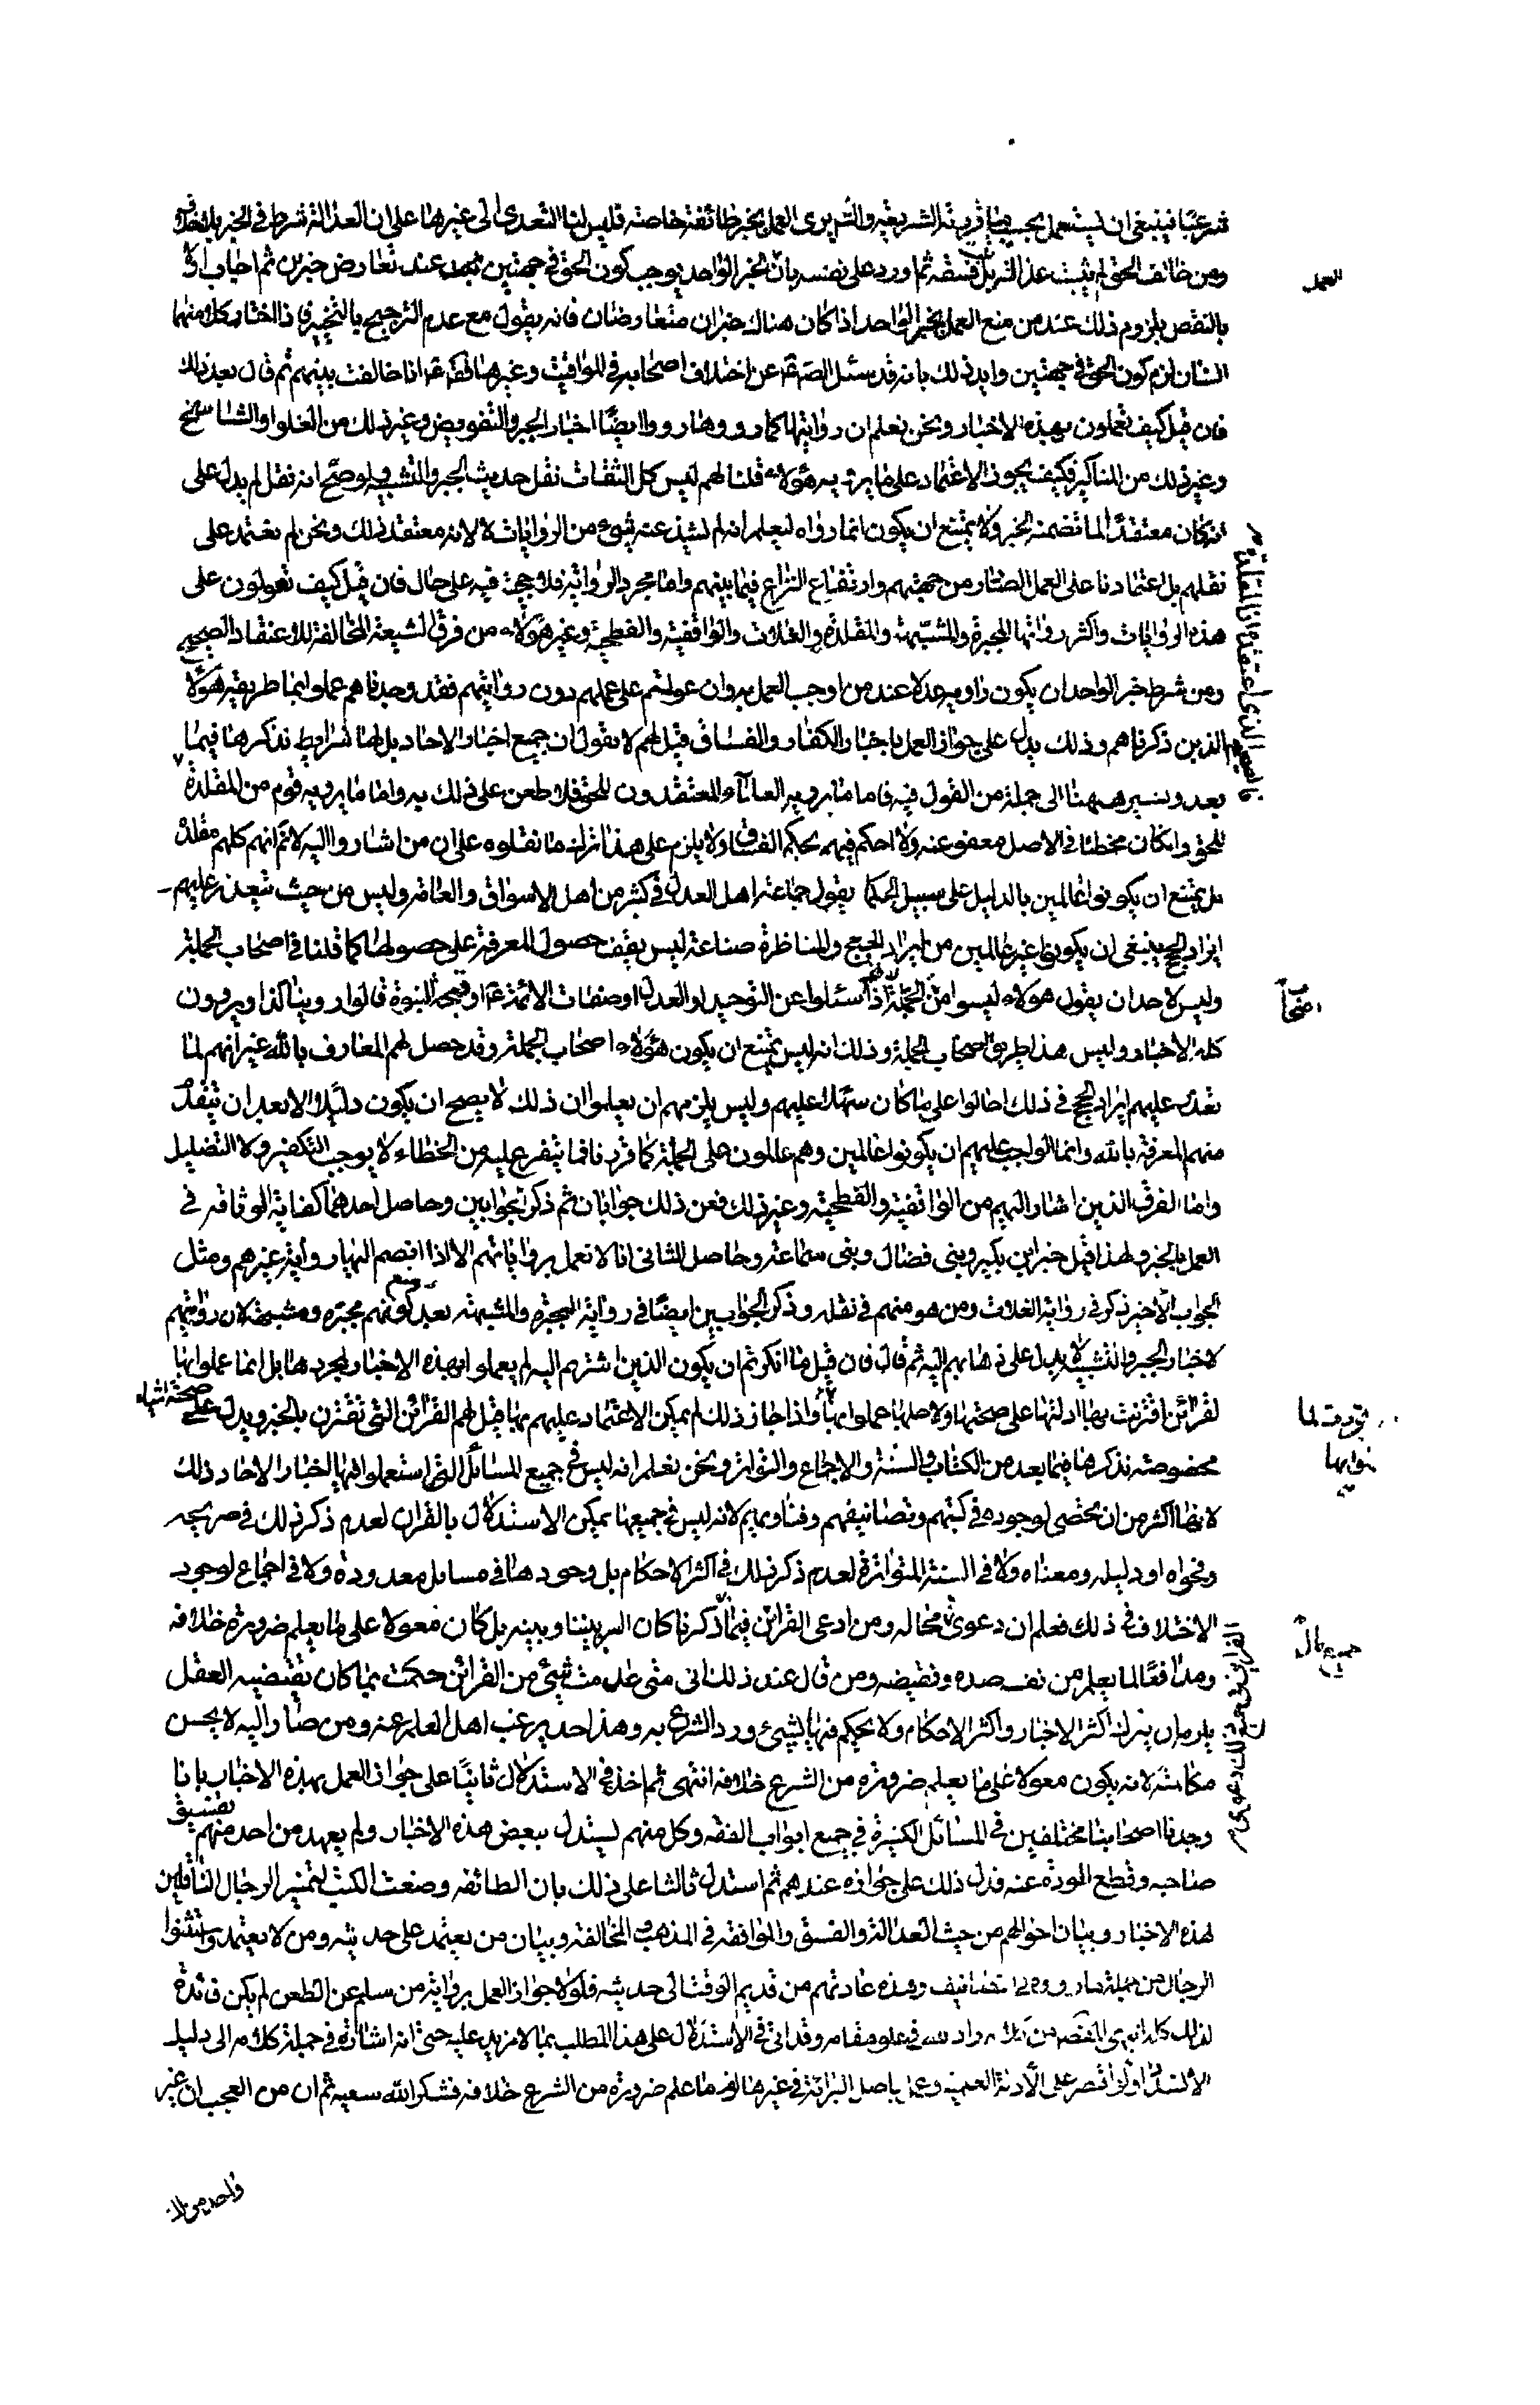 شرعيا فينبغي ان يستعمل بحسب ما قررته الشريعة والشرع يرى العمل بخبر طائفة خاصة فليس لنا التعدي الى غيرها على ان العدالة شرط في الخبر بلا خلاف
ومن خالف الحق لم يثبت عدالته بل ثبت فسقه ثم اورد على نفسه بان الخبر الواحد يوجب كون الحق في جهتين عند تعارض خبرين ثم اجاب اولا
بالنقض بلزوم ذلك عند من منع العمل بخبر الواحد اذا كان هناك خبران متعارضان فانه يقول مع عدم الترجيح بالتخيير فاذا اختار كلا منهما
انسان لزم كون الحق في جهتين وايد ذلك بانه قد سئل الصادق ع عن اختلاف اصحابه في المواقيت وغيرها فقال ع انا خالفت بينهم ثم قال بعد ذلك
فان قيل كيف تعملون بهذه الاخبار ونحن نعلم ان رواتها كما رووها رووا ايضا اخبار الجبر والتفويض وغير ذلك من الغلو والتناسخ
وغير ذلك من المناكير فكيف يجوز الاعتماد على ما يرويه هؤلاء قلنا لهم ليس كل الثقات نقل حديث الجبر والتشبيه ولو صح انه نقل لم يدل على
انه كان معتقدا لما تضمنه الخبر ولا يمتنع ان يكون انما رواه ليعلم انه لم يشذ عنه شيء من الروايات لا لانه معتقد ذلك ونحن لم نعتمد على
نقلهم بل اعتمادنا على العمل الصادر من جهتهم وارتفاع النزاع فيما بينهم واما مجرد الرواية فلا حجة فيه على حال فان قيل كيف تعولون على
هذه الروايات واكثر رواتها المجبرة والمشبهة والمقلدة والغلاة والواقفية والفطحية وغير هؤلاء من فرق الشيعة المخالفة للاعتقاد الصحيح
ومن شرط خبر الواحد ان يكون راويه عدلا عند من اوجب العمل به وان عولتم على عملهم دون روايتهم فقد وجدناهم عملوا بما طريقه هؤلاء
الذين ذكرناهم وذلك يدل على جواز العمل باخبار الكفار والفساق قيل لهم لا نقول ان جميع اخبار الاحاد بل لها شرايط نذكرها فيما
بعد ونشير ههنا الى جملة من القول فيه فاما ما يرويه العلماء المعتقدون للحق فلا طعن على ذلك به واما ما يرويه قوم من المقلدة
للحق وانكان مخطئا في الاصل معفو عنه ولا احكم فيهم بحكم الفساق ولا يلزم على هذا ترك ما نقلوه على ان من اشاروا اليه لا نم انهم كلهم مقلدة
بل يمتنع ان يكونوا عالمين بالدليل على سبيل الجملة كما يقول جماعة اهل العدل في كثير من اهل الاسواق والعامة وليس من حيث يتعذر عليهم
ايراد الحجج ينبغي ان يكونوا غير عالمين من ايراد الحجج والمناظرة صناعة ليس يقف حصول المعرفة على حصولها كما قلنا في اصحاب الجملة
وليس لاحد ان يقول هؤلاء ليسوا من اصحاب الجملة لانهم اذا سئلوا عن التوحيد او العدل او صفات الائمة ع او صحة النبوة قالوا روينا كذا ويروون
كله الاخبار وليس هذا طريق اصحاب الجملة وذلك انه ليس يمتنع ان يكون هؤلاء اصحاب الجملة وقد حصل لهم المعارف بالله غير انهم لما
تعذر عليهم ايراد الحجج في ذلك احالوا على ما كان سهلا عليهم وليس يلزمهم ان يعلموا ان ذلك لا يصح ان يكون دليلا الا بعد ان يتقدم
منهم المعرفة بالله وانما الواجب عليهم ان يكونوا عالمين وهم عالمون على الجملة كما قررنا فما يتفرع عليه من الخطاء لا يوجب التكفير ولا التضليل
واما الفرق الذين اشاروا اليهم من الواقفية والفطحية وغير ذلك فعن ذلك جوابان ثم ذكر الجوابين وحاصل احدهما كفاية الوثاقة في
العمل بالخبر ولهذا قبل خبر ابن بكير وبني فضال وبني سماعة وحاصل الثاني انا لا نعمل برواياتهم الا اذا انضم اليها رواية غيرهم ومثل
الجواب الاخير ذكر في رواية الغلاة ومن هو متهم في نقله وذكر الجوابين ايضا في رواية المجبرة والمشبهة بعد منع كونهم مجبرة ومشبهة لان روايتهم
لاخبار الجبر والتشبيه لا يدل على ذهابهم اليه ثم قال فان قيل ما انكرتم ان يكون الذين اشرتم اليهم لم يعملوا بهذه الاخبار لمجردها بل انما عملوا بها
لقرائن اقترنت بها دلتهم على صحتها ولاجلها عملوا بها واذا جاز ذلك لم يمكن الاعتماد عليهم بها قيل لهم القرائن التي تقترن بالخبر ويدل على صحته اشياء
مخصوصة نذكرها فيما بعد من الكتاب والسنة والاجماع والتواتر ونحن نعلم انه ليس في جميع المسائل التي استعملوا فيها اخبار الاحاد ذلك
لانها اكثر من ان تحصى لوجوده في كتبهم وتصانيفهم وفتاويهم لانه ليس في جميعها يمكن الاستدلال بالقران لعدم ذكر ذلك في صريحه
وفحواه او دليله ومعناه ولا في السنة المتواترة لعدم ذكر ذلك في اكثر الاحكام بل وجودها في مسايل معدودة ولا في اجماع لوجود
الاختلاف في ذلك فعلم ان دعوى محالة ومن ادعى القرائن فيما ذكرنا كان السبر بيننا وبينه بل كان معولا على ما يعلم ضرورة خلافه
ومدافعا لما يعلم من نفسه ضده ونقيضه ومن قال عند ذلك اني متى عدمت شيئا من القرائن حكمت بما كان يقتضيه العقل
يلزمه ان يترك اكثر الاخبار واكثر الاحكام ولا يحكم فيها بشيء ورد الشرع به وهذا حد يرغب اهل العلم عنه ومن صار اليه لا يحسن
مكالمته لانه يكون معولا على ما يعلم ضرورة من الشرع خلافه انتهى ثم اخذ في الاستدلال ثانيا على جواز العمل بهذه الاخبار بانا
وجدنا اصحابنا مختلفين في المسائل الكثيرة في جميع ابواب الفقه وكل منهم يستدل ببعض هذه الاخبار ولم يعهد من احد منهم تفسيق
صاحبه وقطع المودة عنه فدل ذلك على جوازه عندهم ثم استدل ثالثا على ذلك بان الطائفة وضعت الكتب لتمييز الرجال الناقلين
لهذه الاخبار وبيان احوالهم من حيث العدالة والفسق والموافقة في المذهب والمخالفة وبيان من يعتمد على حديثه ومن لا يعتمد واستثنوا
الرجال من جملة ما رووه في التصانيف وهذه عادتهم من قديم الوقت الى حديثه فلولا جواز العمل برواية من سلم عن الطعن لم يكن فائدة
لذلك كله انتهى المقصود من كلامه زاد الله في علو مقامه وقد اتى في الاستدلال على هذا المطلب بما لا مزيد عليه حتى انه اشار في جملة كلامه الى دليل
الانسداد وانه لو اقتصر على الادلة العلمية وعمل باصل البرائة في غيرها لزم ما علم ضرورة من الشرع خلافه فشكر الله سعيه ثم ان من العجب ان غير
واحد من